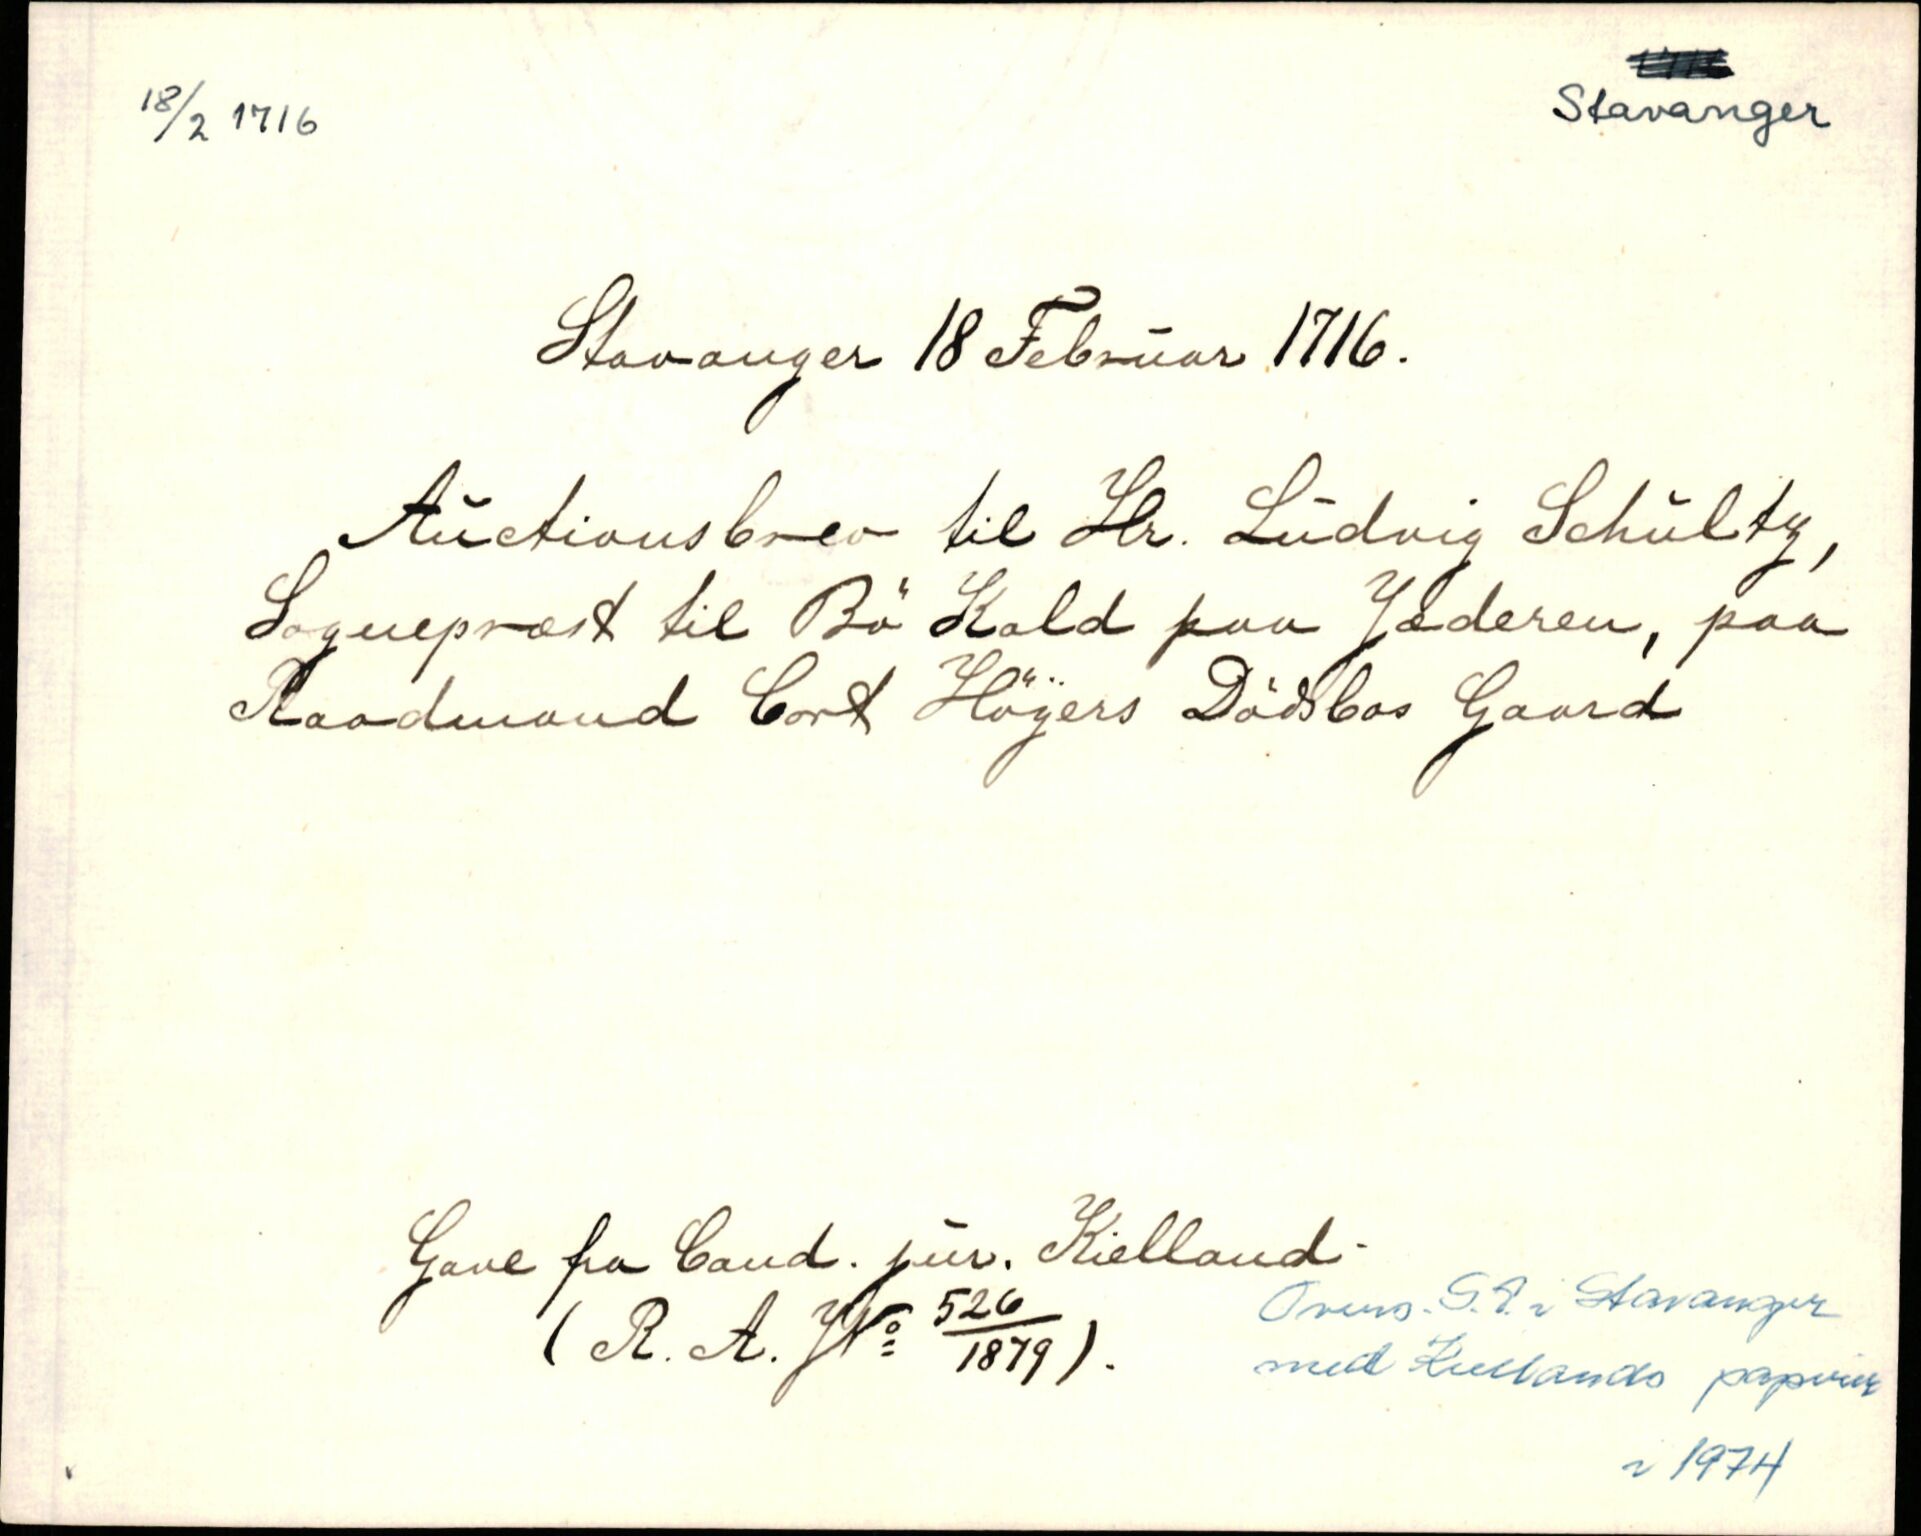 18/2 1716
Stavanger
Stavanger 18 Februar 1716.
Auctionsbrev til Hr. Ludvig Schultz,
Sognepræst til Bö Kald paa Jæderen, paa
Raadmand Cort Höÿers Dödsbos Gaard
Gave fra Cand. jur. Kielland.
(R. A. JNo 526/1879).
Overs. S.A. i Stavanger
med Kiellands papirer
i 1974